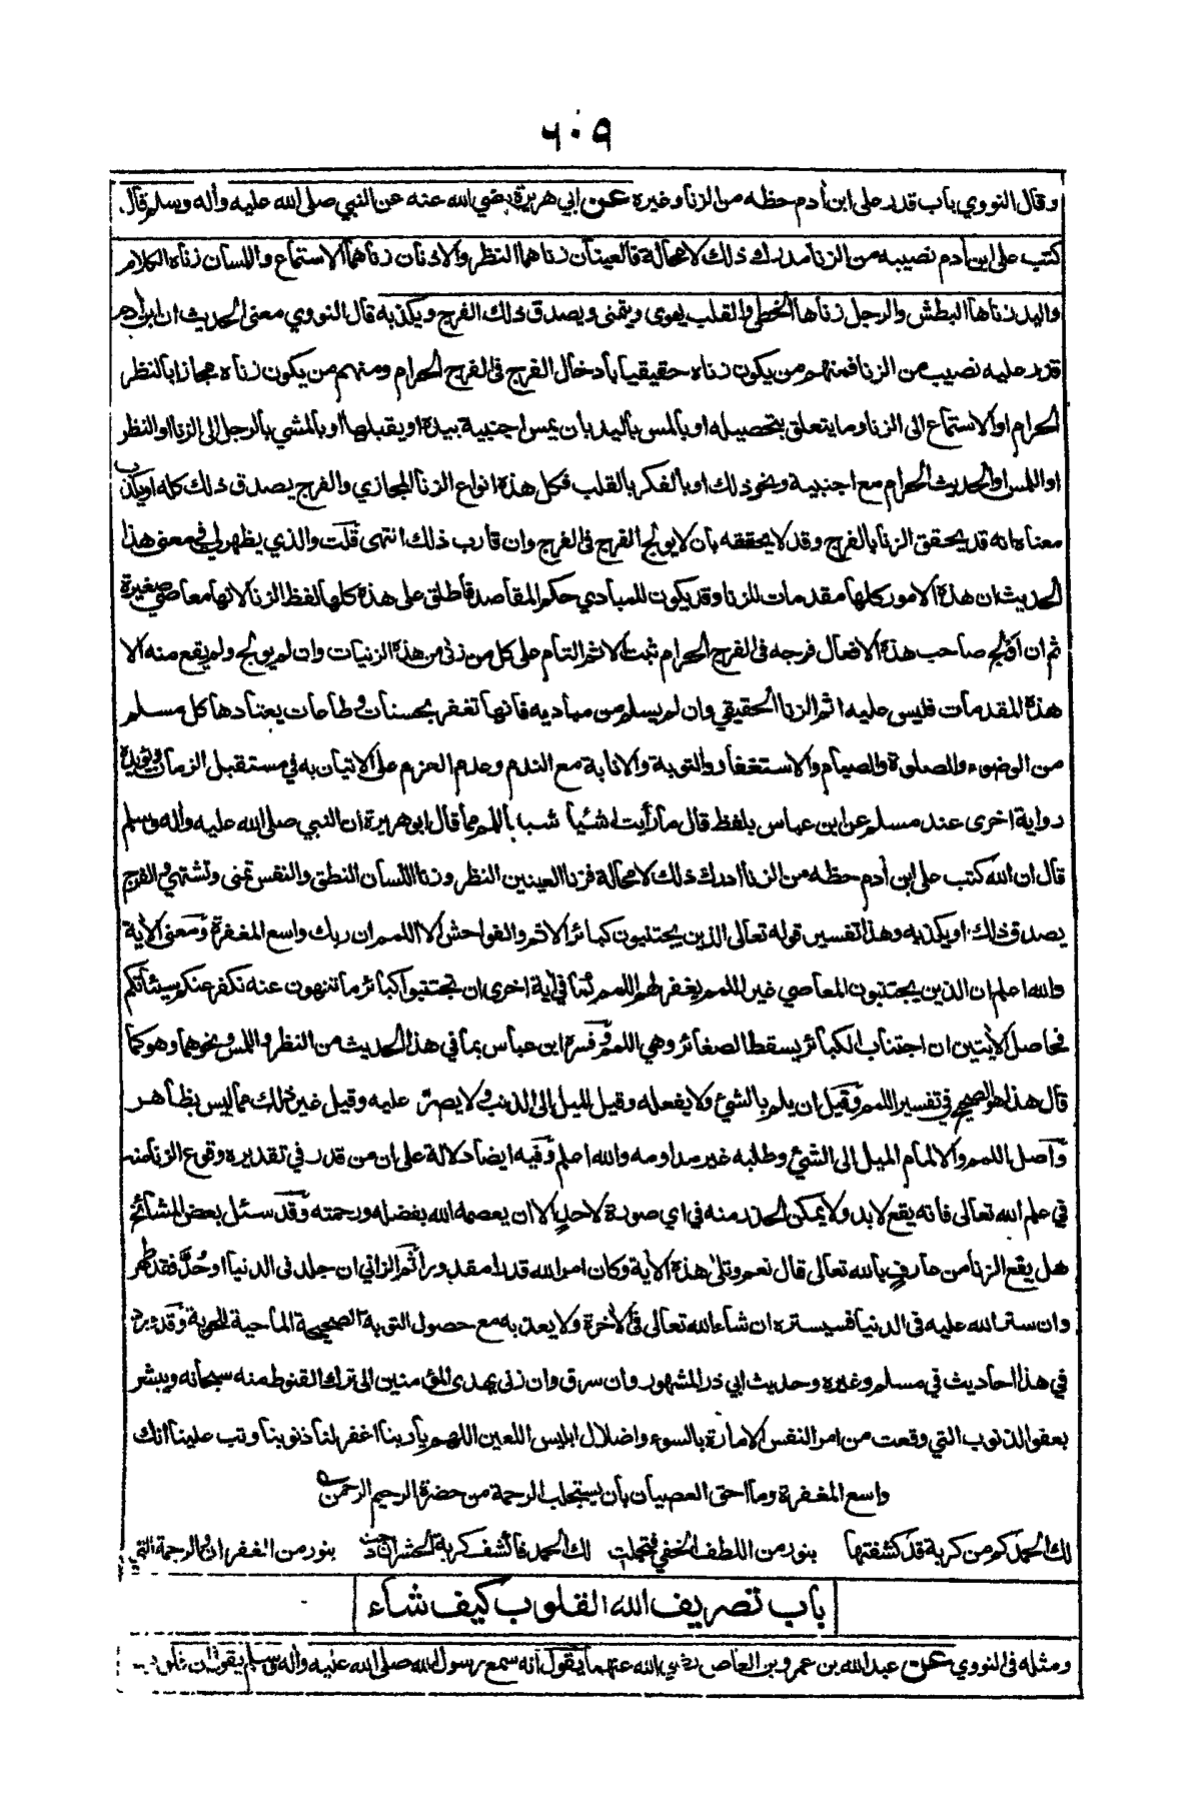 ٦٠٩
وقال النووي باب قدر على ابن أدم حظه من الزنا وغيرة عن ابي هريرة رضي الله عنه عن النبي صلى الله عليه وأله وسلم قال
كتب على ابن أدم نصيبه من الزنا مدرك ذلك لا محالة فالعينان زناهما النظر والاذنان زناهما الاستماع واللسان زناه الكلام
واليد زناها البطش والرجل زناها الخطى والقلب يهوى ويتمنى ويصدق ذلك الفرج ويكذبه قال النووي معنى الحديث ان ابن أدم
قدر عليه نصيب من الزنا فمنهم من يكون زناه حقيقيا بادخال الفرج في الفرج الحرام ومنهم من يكون زناه مجازا بالنظر
الحرام او الاستماع الى الزنا وما يتعلق بتحصيله او بالمس باليد بان يمس اجنبية بيده او يقبلها او بالمشي بالرجل الى الزنا او النظر
او اللمس او الحديث الحرام مع اجنبية ونحو ذلك او بالفكر بالقلب فكل هذه انواع الزنا المجازي والفرج يصدق ذلك كله او يكذب
معناه انه قد يحقق الزنا بالفرج وقد لا يحققه بان لا يولج الفرج في الفرج وان قارب ذلك انتهى قلت والذي يظهر لي في معنى هذا
الحديث ان هذه الامور كلها مقدمات للزنا وقد يكون للمبادي حكم المقاصد فاطلق على هذه كلها لفظ الزنا لانها معاصي صغيرة
ثم ان افلج صاحب هذه الافعال فرجه في الفرج الحرام ثبت الاثم التام على كل من زنى من هذه الزنيات وان لم يولج ولم يقع منه الا
هذه المقدمات فليس عليه اثم الزنا الحقيقي وان لم يسلم من مباديه فانها تغفر بحسنات وطاعات يعتادها كل مسلم
من الوضوء والصلوة والصيام والاستغفار والتوبة والانابة مع الندم وعدم العزم على الاتيان به في مستقبل الزمان ويؤيدة
رواية اخرى عند مسلم عن ابن عباس بلفظ قال ما رأيت شيأ اشبه باللمم مما قال ابو هريرة ان النبي صلى الله عليه وأله وسلم
قال ان الله كتب على ابن أدم حظه من الزنا ادرك ذلك لا محالة فزنا العينين النظر وزنا اللسان النطق والنفس تمنى وتشتهي والفرج
يصدق ذلك او يكذبه وهذا تفسير قوله تعالى الذين يجتنبون كبائر الاثم والفواحش الا اللمم ان ربك واسع المغفرة ومعنى الأية
والله اعلم ان الذين يجتنبون المعاصي غير اللمم يغفر لهم اللمم كما في أية اخرى ان تجتنبوا كبائر ما تنهون عنه نكفر عنكم سيئاتكم
فحاصل الأيتين ان اجتناب الكبائر يسقط الصغائر وهي اللمم وفسره ابن عباس بما في هذا الحديث من النظر واللمس ونحوهما وهو كما
قال هذا هو الصحيح في تفسير اللمم وقيل ان يلم بالشيء ولا يفعله وقيل الميل الى الذنب ولا يصر عليه وقيل غير ذلك مما ليس بظاهر
واصل اللمم والالمام الميل الى الشيء وطلبه غير مداومه والله اعلم وفيه ايضا دلالة على ان من قدر في تقديره وقوع الزنا منه
في علم الله تعالى فانه يقع لا بد ولا يمكن الحذر منه في اي صورة لاحد الا ان يعصمه الله بفضله ورحمته وقد سئل بعض المشائخ
هل يقع الزنا من عارف بالله تعالى قال نعم وتلى هذه الأية وكان امر الله قدرا مقدورا ثم الزاني ان جلد في الدنيا او حُدَّ فقد طهر
وان ستر الله عليه في الدنيا فسيستره ان شاء الله تعالى في الأخرة ولا يعذبه مع حصول التوبة الصحيحة الماحية للحوبة وقد ورد
في هذا احاديث في مسلم وغيره وحديث ابي ذر المشهور وان سرق وان زنى يهدى المؤمنين الى ترك القنوط منه سبحانه ويبشر
بعفو الذنوب التي وقعت من امر النفس الامارة بالسوء واضلال ابليس اللعين اللهم يا ربنا اغفر لنا ذنوبنا وتب علينا انك
واسع المغفرة وما احق العصيان بان يستجلب الرحمة من حضرة الرحيم الرحمن
لك الحمد كم من كربة قد كشفتها بنور من اللطف الخفي فتجلت لك الحمد فاكشف كربة الحشر ان دجت بنور من الغفران والرحمة التي
باب تصريف الله القلوب كيف شاء
ومثله في النووي عن عبد الله بن عمرو بن العاص رضي الله عنهما يقول انه سمع رسول الله صلى الله عليه وأله وسلم يقول ان